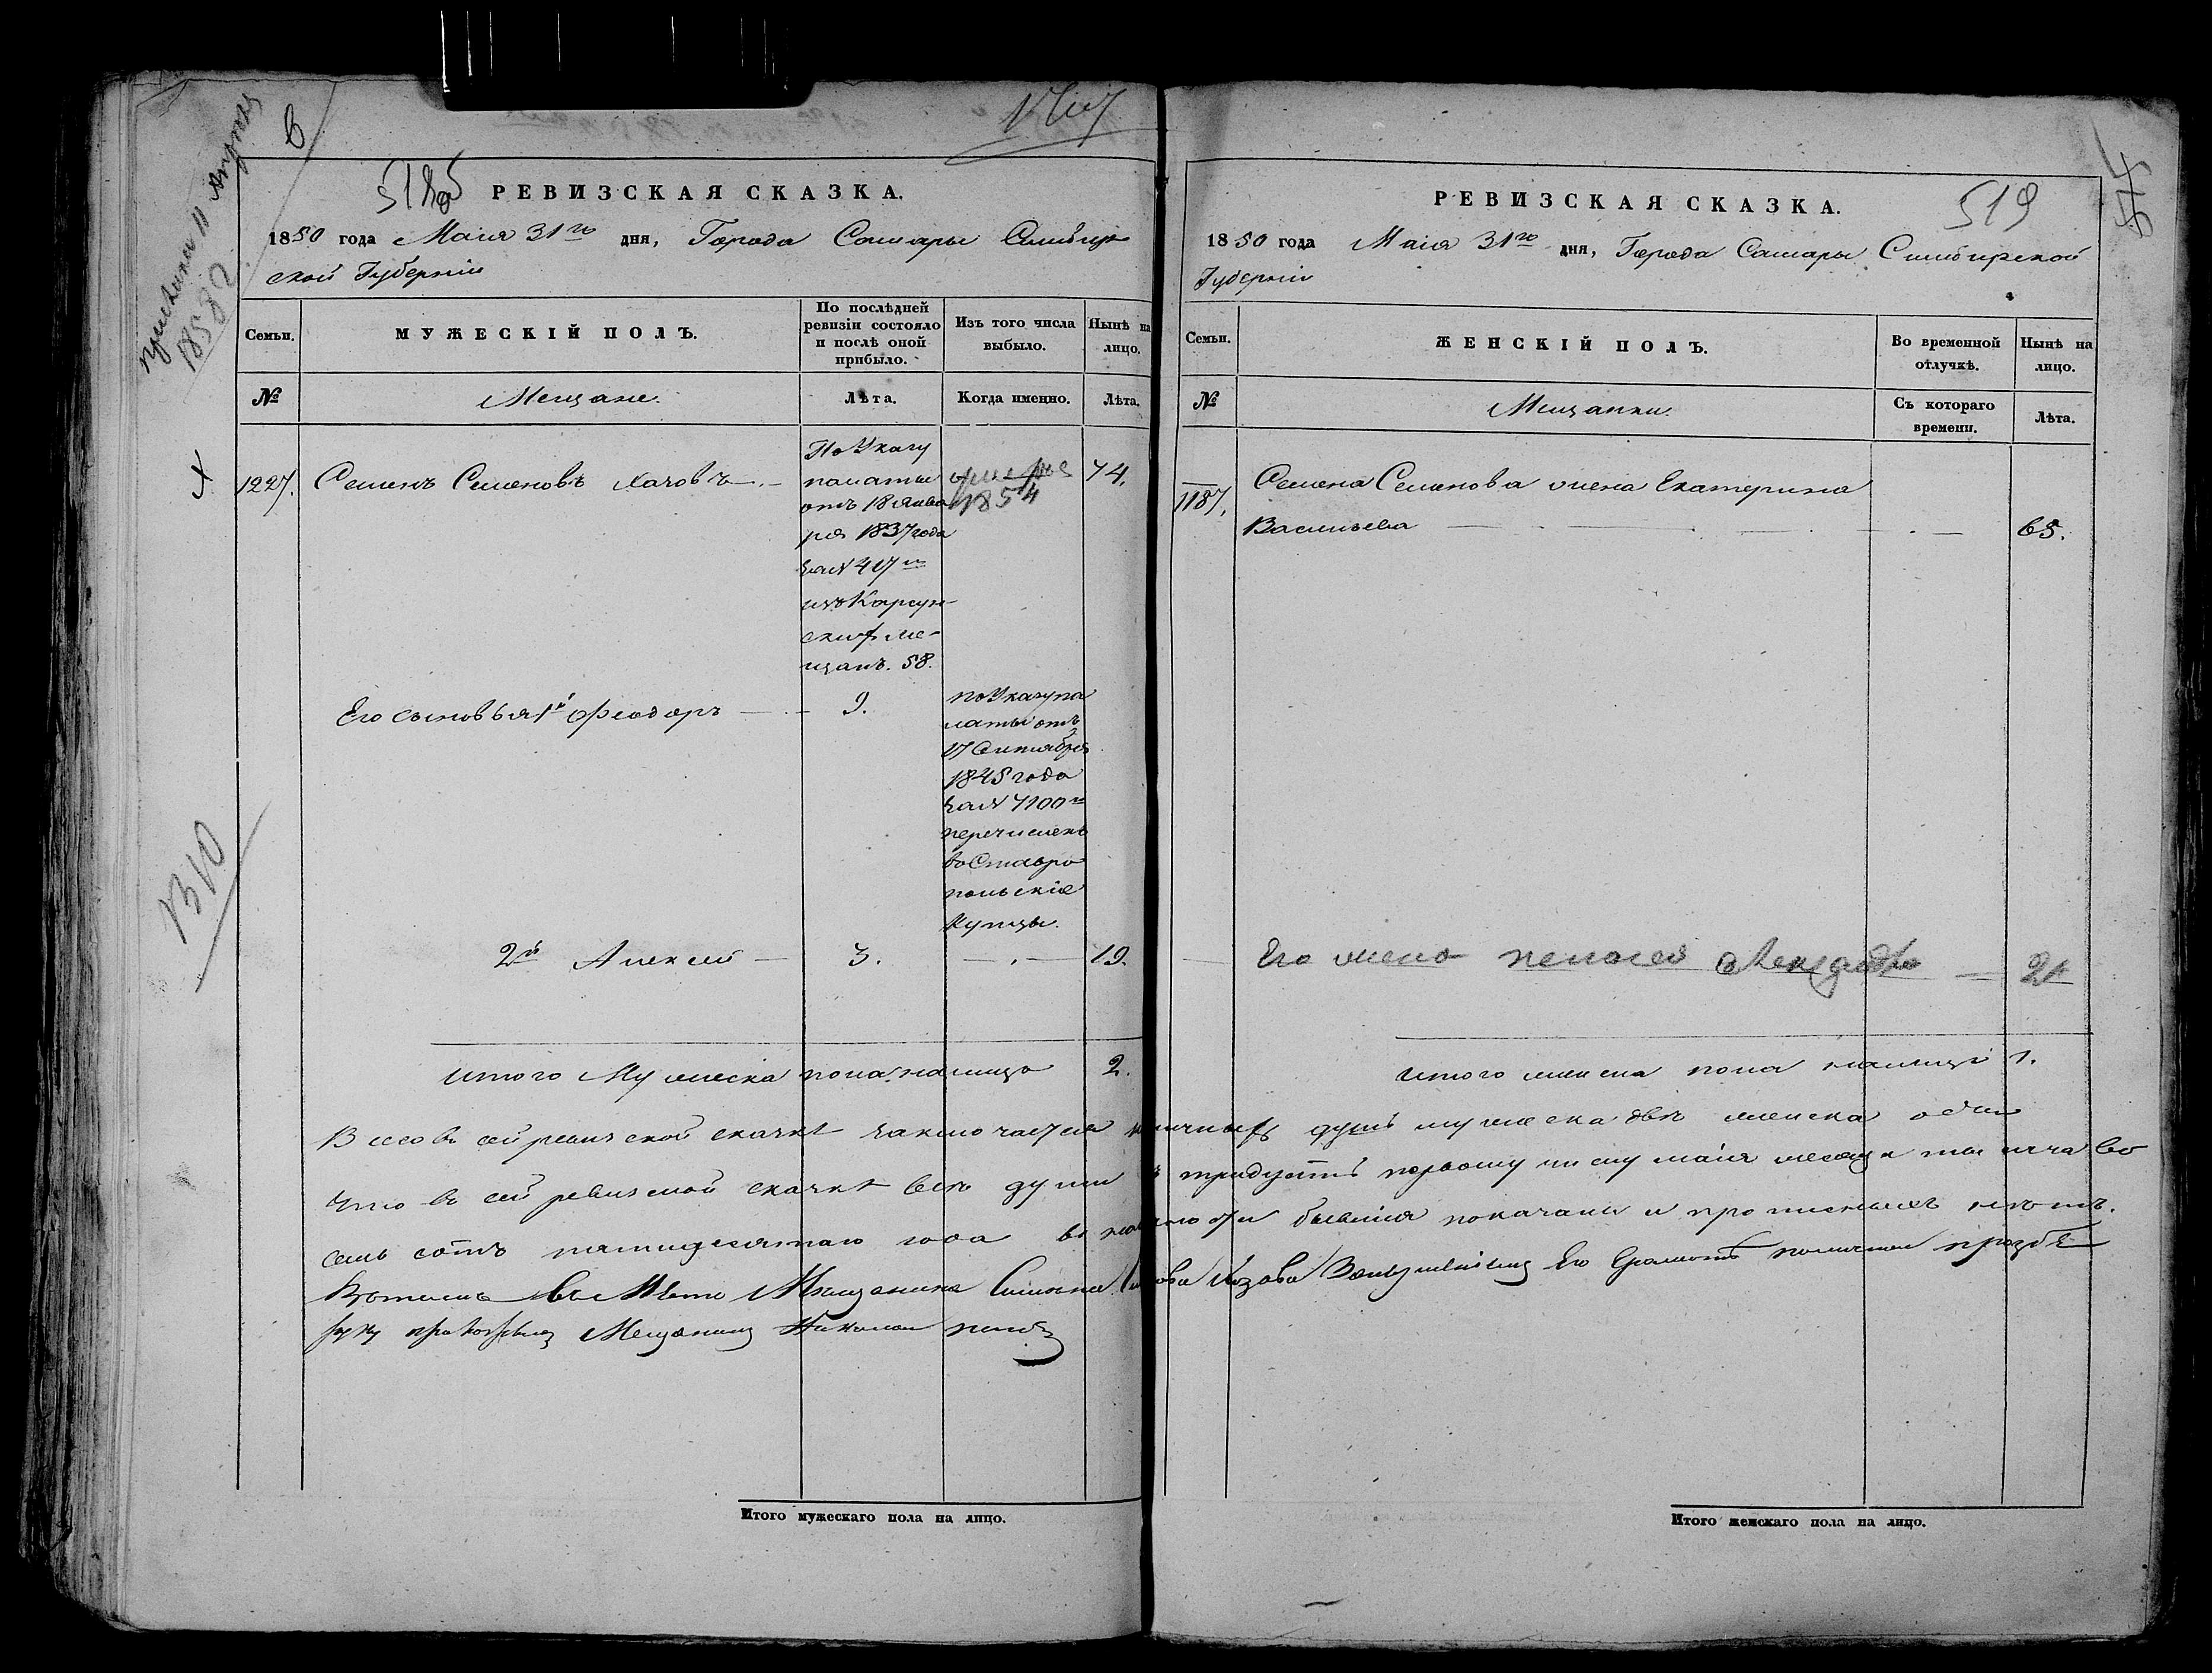 6
518об
РЕВИЗСКАЯ СКАЗКА.
1850 года Маія 31го дня, Города Самары Симбир
ской Губерніи
Семьи.
МУЖЕСКІЙ ПОЛЪ.
По послѣдней ревизіи состояло и послѣ оной прибыло.
Изъ того числа выбыло.
Нынѣ на лицо.
№
Мещане.
Лѣта.
Когда именно.
Лѣта.
1227. Семенъ Семеновъ
По Указу
палаты
отъ 18 Янва
ря 1837 года
за №
изъ Карсун
скихъ ме-
щанъ. 58.
1854
74.
Его сыновья 1й Феодоръ
9.
по Указу па
латы отъ
17 Сентября
1845 года
за № 7100м
перечисленъ
въ Ставро
польскіе
Купцы.
2й Алексей
3.
19.
Итого Мужеска пола на лицо 2.
1310
1858
Итого мужескаго пола на лицо.
519
РЕВИЗСКАЯ СКАЗКА.
1850 года Маія 31го дня, Города Самары Симбирской
Губерніи
Семьи.
ЖЕНСКІЙ ПОЛЪ.
Во временной отлучкѣ.
Нынѣ на лицо.
№
Мещанки.
Съ котораго времени.
Лѣта.
1187. Семена Семенова жена Екатерина
Васильева 65.
Его жена 21
Итого женска пола на лицо 1.
Всего въ сей ревизской сказкѣ заключается наличныхъ душъ мужеска двѣ женска одна
Что въ сей ревизской сказкѣ всѣ души къ тридцать первому числу маія месяца тысяча во
семь сотъ пятидесятаго года въ наличности бывшія показаны и прописныхъ нѣтъ.
Мещанина Семена Его Грамотѣ прозбе
руку Мещанинъ Николай
Итого женскаго пола на лицо.